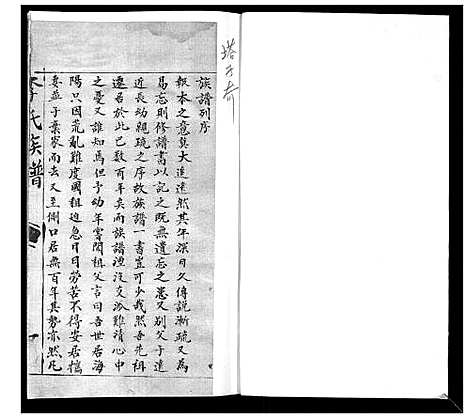 塔子奇
族譜列序
報本之意莫大追遠然其年深日久傳說漸疏又為
易忘則修譜書以記之既無遺忘之患又別父子遠
近長幼親疏之序故族譜一書豈可少哉然吾先祖
遷居於此已数百年矣而族譜湮沒支派難清心中
之憂又誰知焉但予幼年嘗聞祖父言曰吾世居海
陽只因荒亂難度國祖迫急日日勞苦不得安居攜
妻並子棄家而去又至側口居無百年其勢亦然凡
李氏族譜